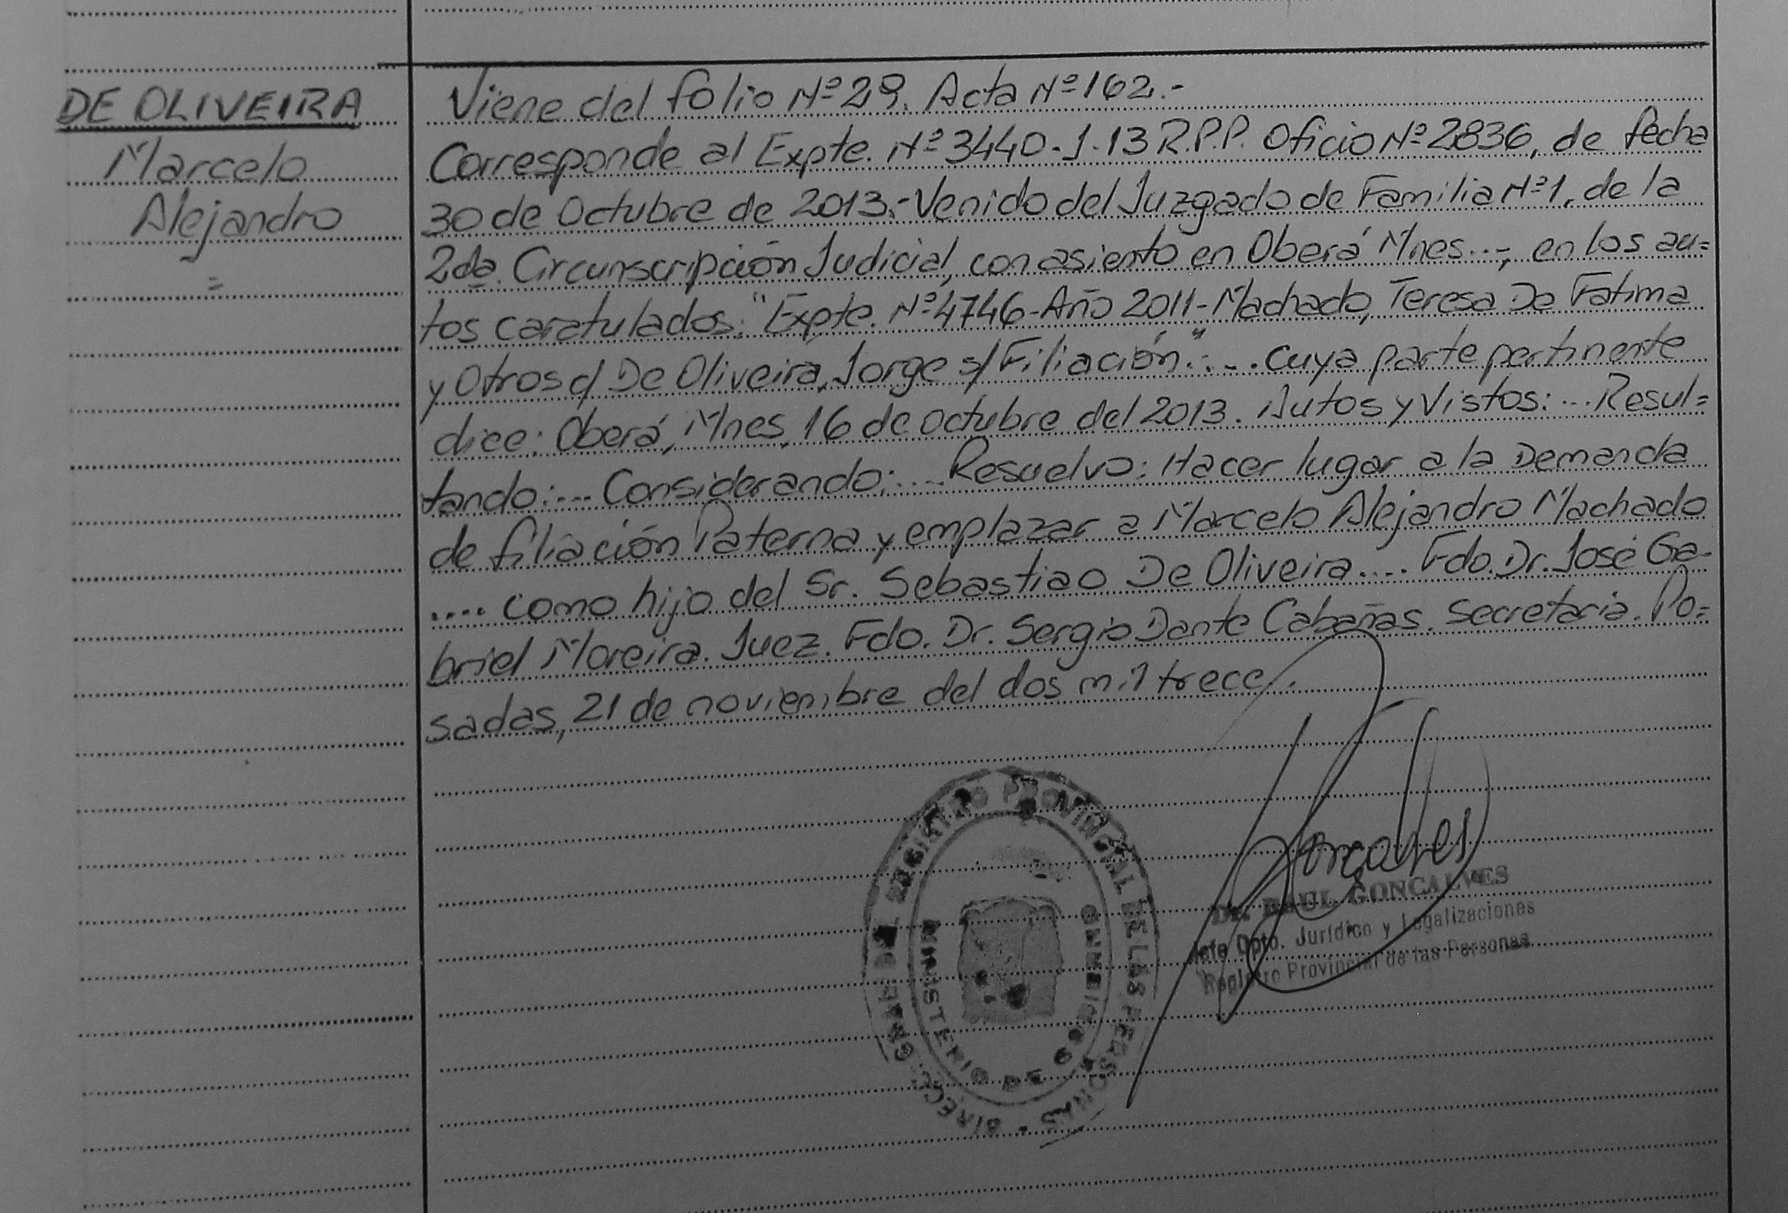 DE OLIVEIRA
Marcelo
Alejandro
=
Viene del folio Nº 29. Acta Nº 162.-
Corresponde al Expte. Nº 3440-J-13 R.P.P. Oficio Nº 2836, de fecha
30 de Octubre de 2013.- Venido del Juzgado de Familia Nº 1, de la
2da. Circunscripción Judicial, con asiento en Oberá Mnes..., en los au=
tos caratulados: "Expte. Nº 4746-Año 2011-Machado, Teresa De Fatima
y Otros c/ De Oliveira, Jorge s/ Filiación".... cuya parte pertinente
dice: Oberá, Mnes, 16 de octubre del 2013. Autos y Vistos:... Resul=
tando:... Considerando:.... Resuelvo: Hacer lugar a la Demanda
de filiación Paterna y emplazar a Marcelo Alejandro Machado
.... como hijo del Sr. Sebastiao De Oliveira.... Fdo. Dr. José Ga-
briel Moreira. Juez. Fdo. Dr. Sergio Dante Cabañas. Secretaria. Po=
sadas, 21 de noviembre del dos mil trece.
Gonçalves
DR. RAUL GONCALVES
Jefe Dpto. Jurídico y Legalizaciones
Registro Provincial de las Personas
REGISTRO PROVINCIAL DE LAS PERSONAS
MINISTERIO DE GOBIERNO